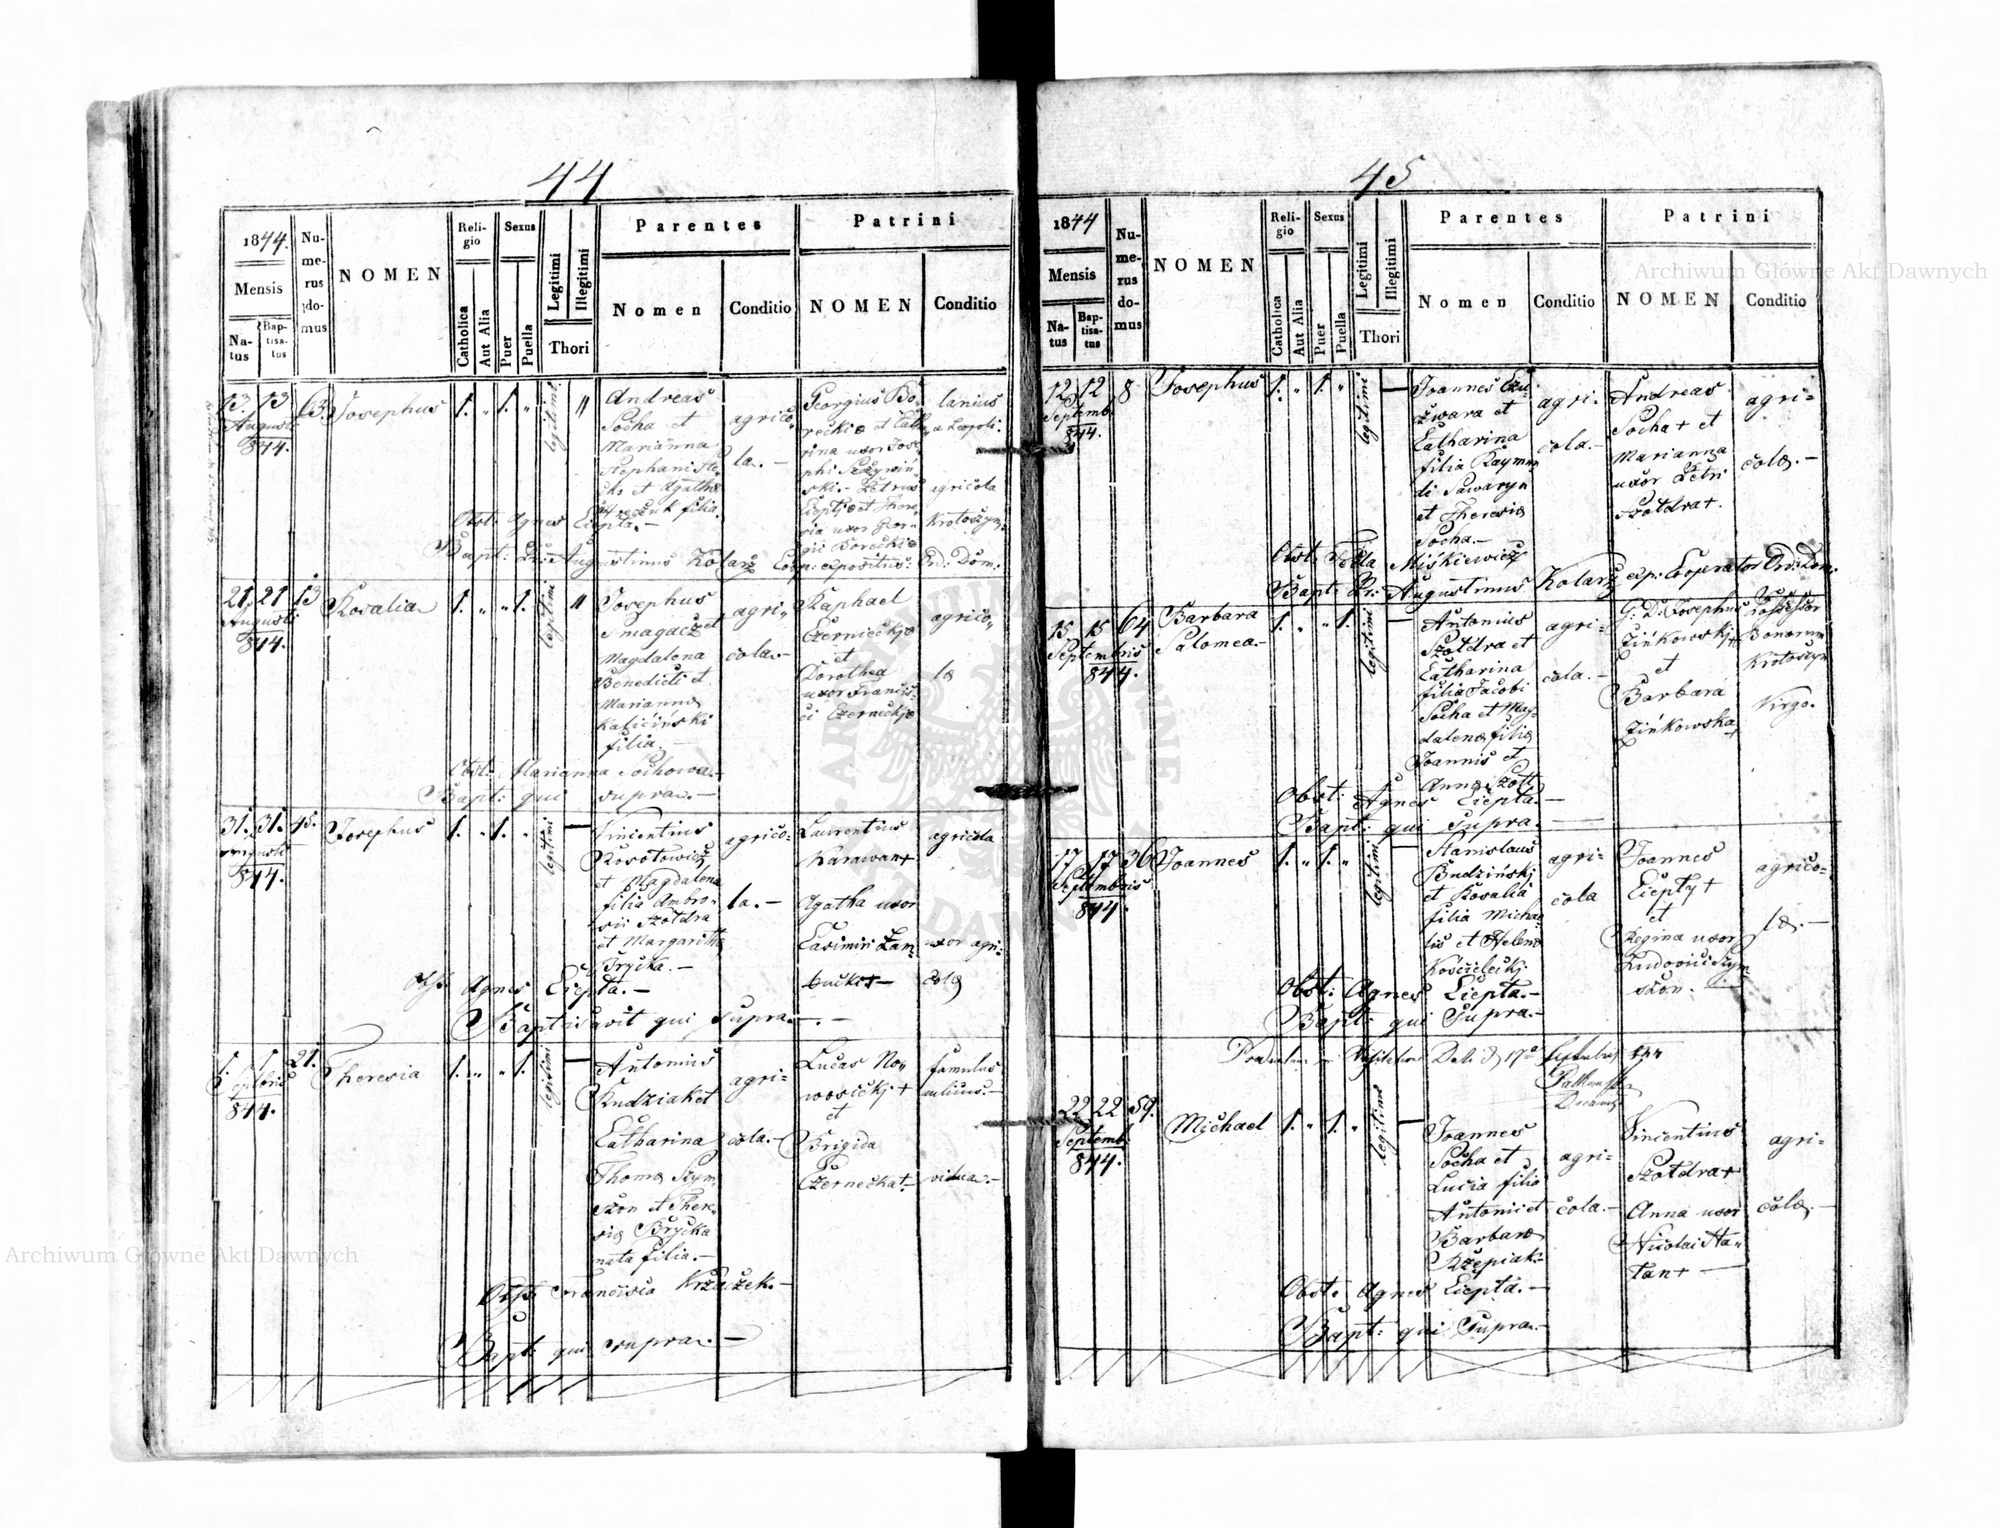 44
1844.
Mensis
Natus
Baptisatus
Numerus domus
NOMEN
Religio
Catholica
Aut Alia
Sexus
Puer
Puella
Legitimi
Illegitimi
Thori
Parentes
Nomen
Conditio
Patrini
NOMEN
Conditio
13. 13
Augusti
844.
63.
Josephus
1. " 1. "
legitimi
"
Andreas
Socha et
Marianna
Stephani
et Agatha
filia.
agrico,,
la. —
Georgius Bo,,
recki et Catha,,
rina uxor Jose,,
phi
ski. — Petrus
Ciepły et There,,
sia uxor Geor,,
gii Borecki
lanius
a Leopoli.
agricola
Krotoszyn.
Obst: Agnes Ciepta. —
Bapt: Pr: Augustinus Kolarz Coop: expositus: Ord: Dom:
21. 21
Augusti
844.
13
Rosalia
1. " " 1.
legitimi
"
Josephus
Smagacz et
Magdalena
Benedicti et
Marianna
Kaliciński
filia. —
agri,,
cola. —
Raphael
Czerniecki
et
Dorothea
uxor Francis,,
ci Czernecki
agrico,,
la
Obst: Marianna Sochowa. —
Bapt: qui supra. —
31. 31.
Augusti
844.
45.
Josephus
1. " 1. "
legitimi
—
Vincentius
Korotowicz
et Magdalena
filia Ambro,,
sii Szotdra
et Margaritha
Brycka. —
agrico,,
la. —
Laurentius
Karawan +
Agatha uxor
Casimiri Zam,,
agricola
uxor agri,,
cola
Obst: Agnes Ciepta. —
Baptisavit qui supra. —
1. 1.
Septembris
844.
21.
Theresia
1. " " 1.
legitimi
—
Antonius
Rudziak et
Catharina
Thoma Szym,,
szon et There,,
sia Brycka
nata filia. —
agri,,
cola. —
Lucas No,,
wosicki +
et
Brigida
Czernecka +. —
famulus
vidua. —
Obst: Francisca Krzaczek. —
Bapt: qui supra. —
45
1844
Mensis
Natus
Baptisatus
Numerus domus
NOMEN
Religio
Catholica
Aut Alia
Sexus
Puer
Puella
Legitimi
Illegitimi
Thori
Parentes
Nomen
Conditio
Patrini
NOMEN
Conditio
12 12
Septemb.
844.
8
Josephus
1. " 1. "
legitimi
—
Joannes
et
Catharina
filia Raymun
di Sawaryn
et Theresia
Socha. —
agri,,
cola. —
Andreas
Socha + et
Marianna
uxor Petri
Szotdra +.
agri,,
cola. —
Obst: Tekla Miśkiewicz
Bapt: Pr: Augustinus Kolarz exp: Cooperator Ord: Dom:
15 15
Septembris
844.
64
Barbara
Salomea. —
1. " " 1.
legitimi
—
Antonius
Szotdra et
Catharina
filia Jacobi
Socha et Mag,,
dalena filia
Joannis et
Anna Szott
agri,,
cola. —
G. D. Josephus
Zińkowski +
et
Barbara
Zińkowska +
Possessor
Bonorum
Krotoszyn
Virgo.
Obst: Agnes Ciepta. —
Bapt: qui Supra. —
17 17
Septembris
844.
36
Joannes
1. " 1. "
legitimi
—
Stanislaus
Budziński
et Rosalia
filia Micha
lis et Helena
Kościelecki.
agri,,
cola
Joannes
Ciepły +
et
Regina uxor
Ludovici Szym
szon.
agrico,,
la. —
Obst: Agnes Ciepta. —
Bapt: qui Supra. —
17
22 22
Septemb.
844.
59.
Michael
1. " 1. "
legitimi
—
Joannes
Socha et
Lucia filia
Antonii et
Barbara
Rzepiak.
agri,,
cola. —
Vincentius
Szotdra +
Anna uxor
Nicolai Ha,,
tan + —
agri,,
cola. —
Obst: Agnes Ciepta. —
Bapt: qui Supra. —
Archiwum Główne Akt Dawnych
Archiwum Główne Akt Dawnych
ARCHIWUM GŁÓWNE AKT DAWNYCH